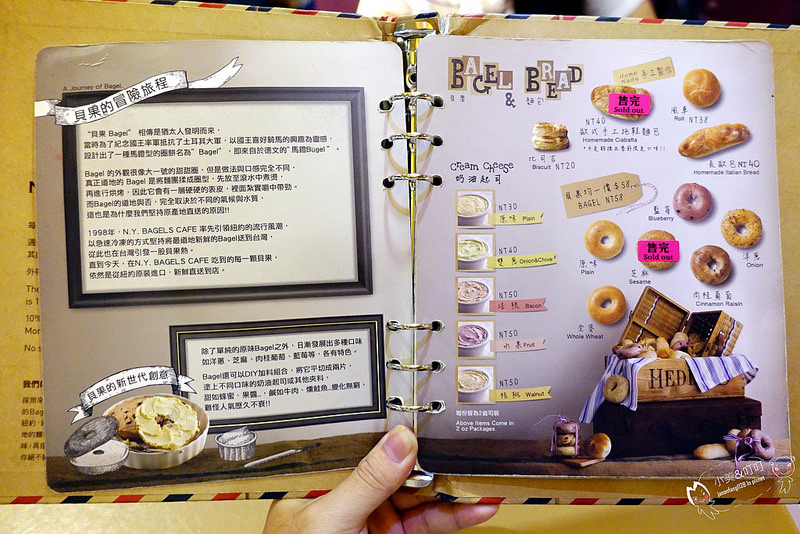 A Journey of Bagel.
貝果的冒險旅程
"貝果 Bagel" 相傳是猶太人發明而來，
當時為了紀念國王率軍抵抗了土耳其大軍，以國王喜好騎馬的興趣為靈感，
設計出了一種馬鐙型的圈餅名為" Bagel"，即來自於德文的"馬鐙Bugel"。
Bagel 的外觀很像大一號的甜甜圈，但是做法與口感完全不同，
真正道地的 Bagel 是將麵團揉成圈型，先放至滾水中燙燙，
再進行烘烤，因此它會有一層硬硬的表皮，裡面紮實嚼中帶勁。
而Bagel的道地與否，完全取決於不同的氣候與水質，
這也是為什麼我們堅持原產地直送的原因!!
1998年，N.Y. BAGELS CAFE 率先引領紐約的流行風潮，
以急速冷凍的方式堅持將最道地新鮮的Bagel送到台灣，
從此也在台灣引發一股貝果熱。
直到今天，在N.Y. BAGELS CAFE 吃到的每一顆貝果，
依然是從紐約原裝進口，新鮮直送到店。
貝果的新世代創意
除了單純的原味Bagel之外，日漸發展出多種口味
如洋蔥、芝麻、肉桂葡萄、藍莓等，各有特色。
Bagel還可以DIY加料組合，將它平切成兩片，
塗上不同口味的奶油起司或其他夾料，
甜如蜂蜜、果醬...，鹹如牛肉、燻鮭魚...變化無窮，
難怪人氣歷久不衰!!
BAGEL & BREAD
貝果 麵包
Home Made 手工製作
售完
Sold out
NT40
歐式手工拖鞋麵包
Homemade Ciabatta
風車
Roll NT38
比司吉
Biscuit NT20
長歐包NT40
Homemade Italian Bread
Cream Cheese
奶油起司
NT30
原味 Plain
NT40
雙蔥 Onion&Chive
NT50
培根 Bacon
NT50
水果Fruit
NT50
核桃 Walnut
每份皆為2盎司裝
Above Items Come in
2 oz Packages
貝果均一價$58,
BAGEL NT58
藍莓
Blueberry
洋蔥
Onion
原味
Plain
售完
Sold out
芝麻
Sesame
肉桂葡萄
Cinnamon Raisin
全麥
Whole Wheat
HEDI
小美&叮叮